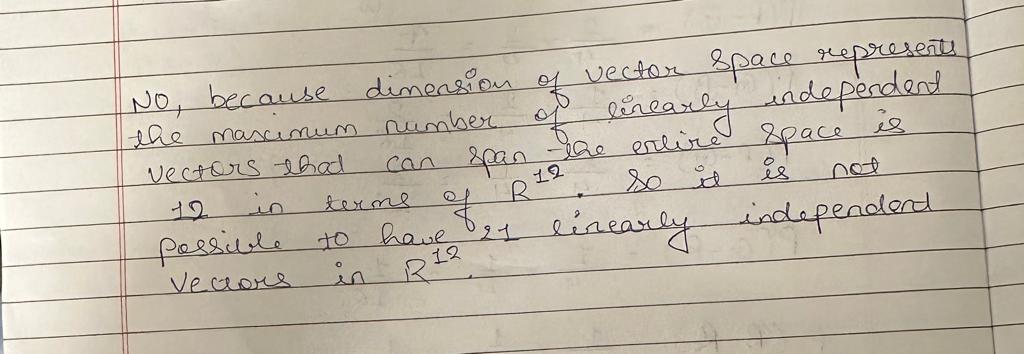 NO, because dimension of vector space represents
the maximum number of linearly independent
vectors that can span the entire space is
12 in terms of R¹². So it is not
possible to have 21 linearly independent
vectors in R¹².